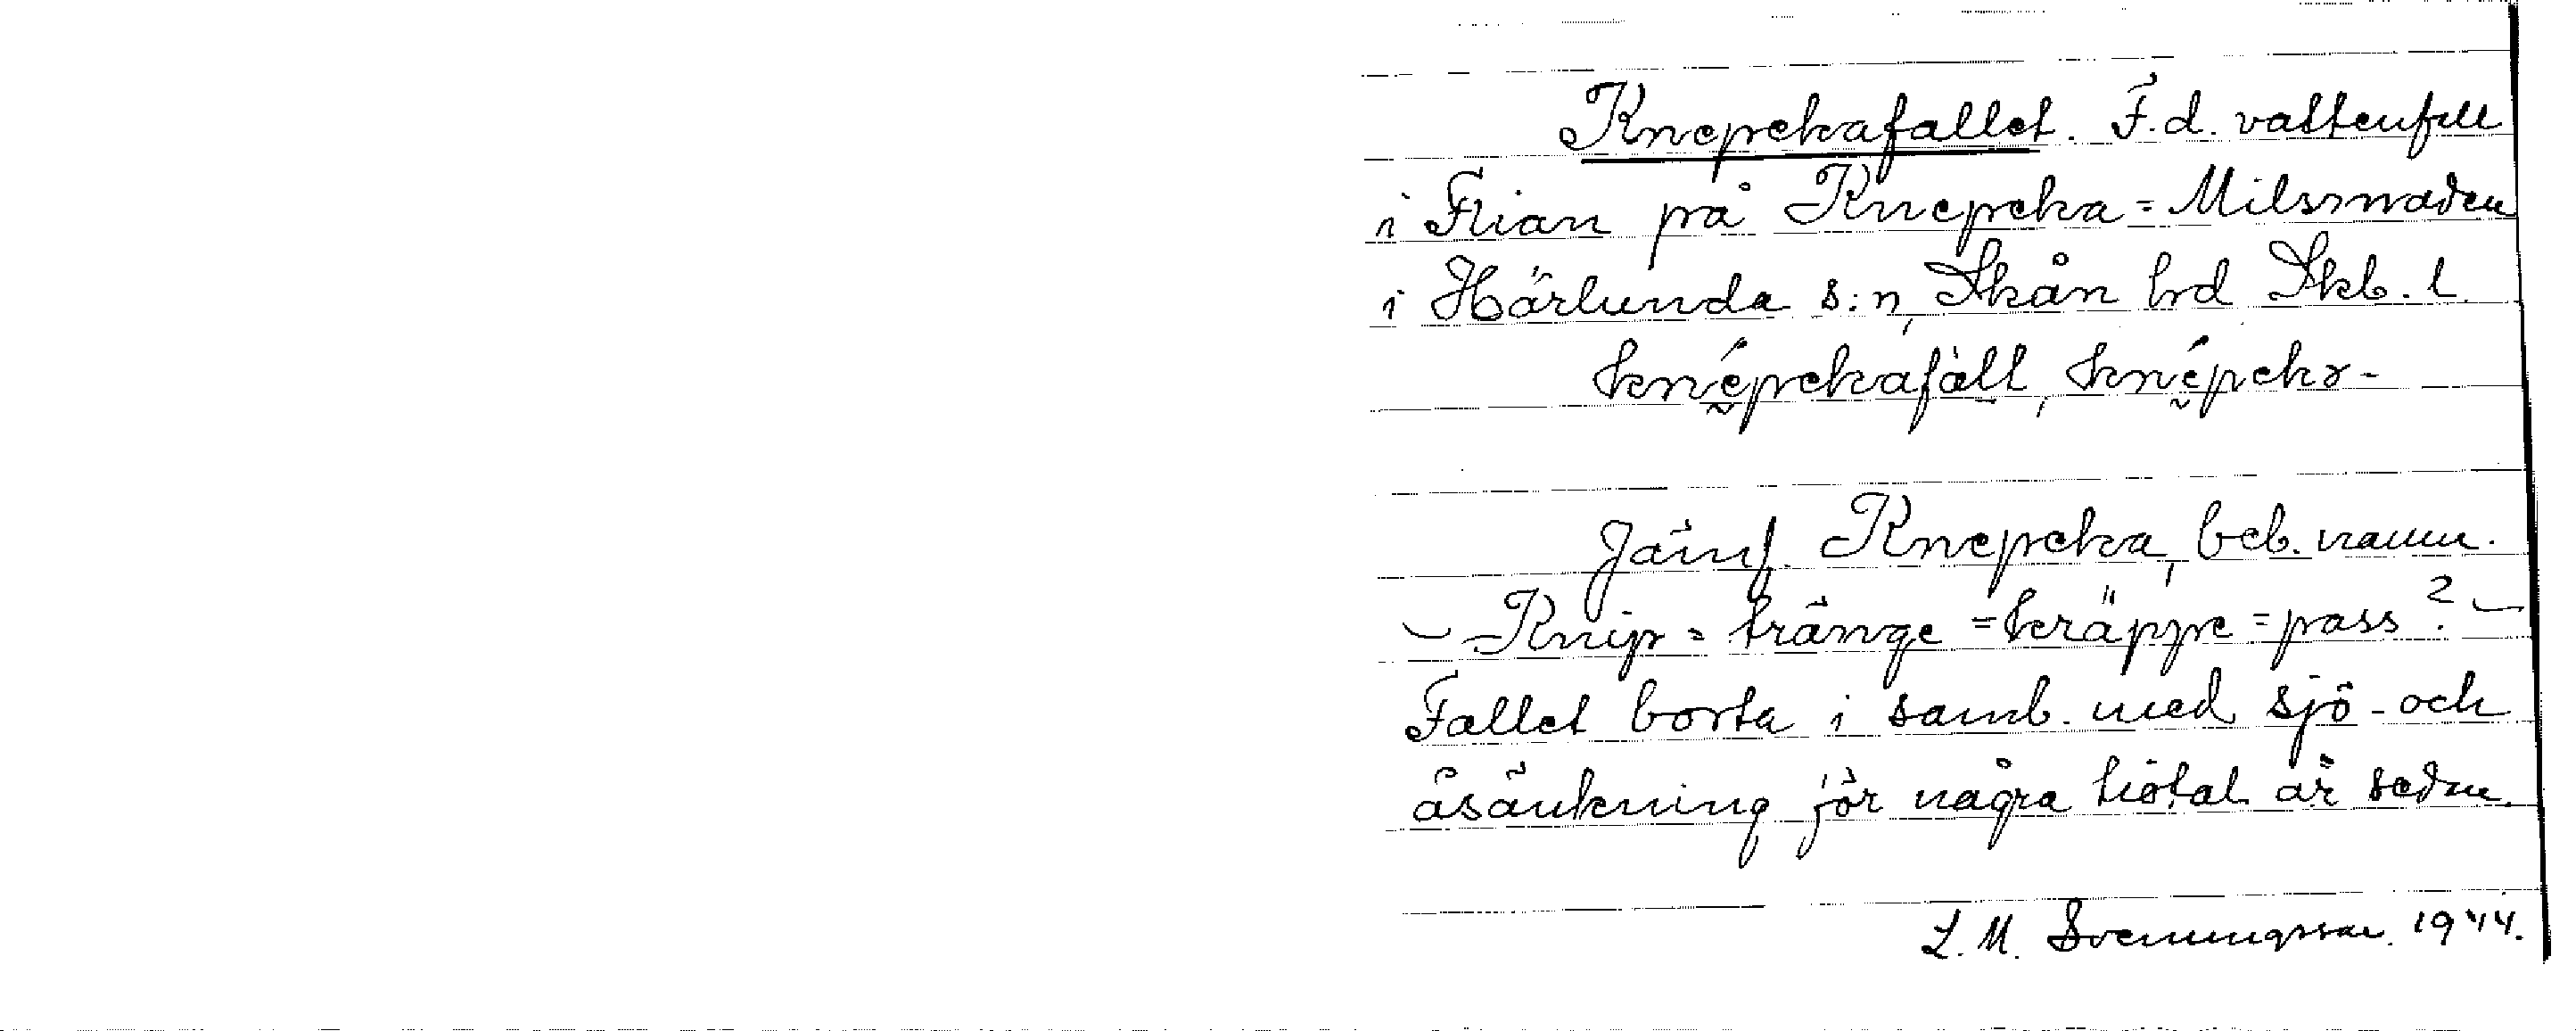 Knepekafallet. F.d. vattenfall
i Flian på Knepeka = Milsmaden
i Härlunda s:n, Skån hrd Skb. l.
knépekafàll, knépeka-
Jämf. Knepeka, beb. namn.
– Knip = trånge = kräppe = pass? –
Fallet borta i samb. med sjö- och
åsänkning för några tiotal år sedan.
L. M. Svenungsson. 1944.